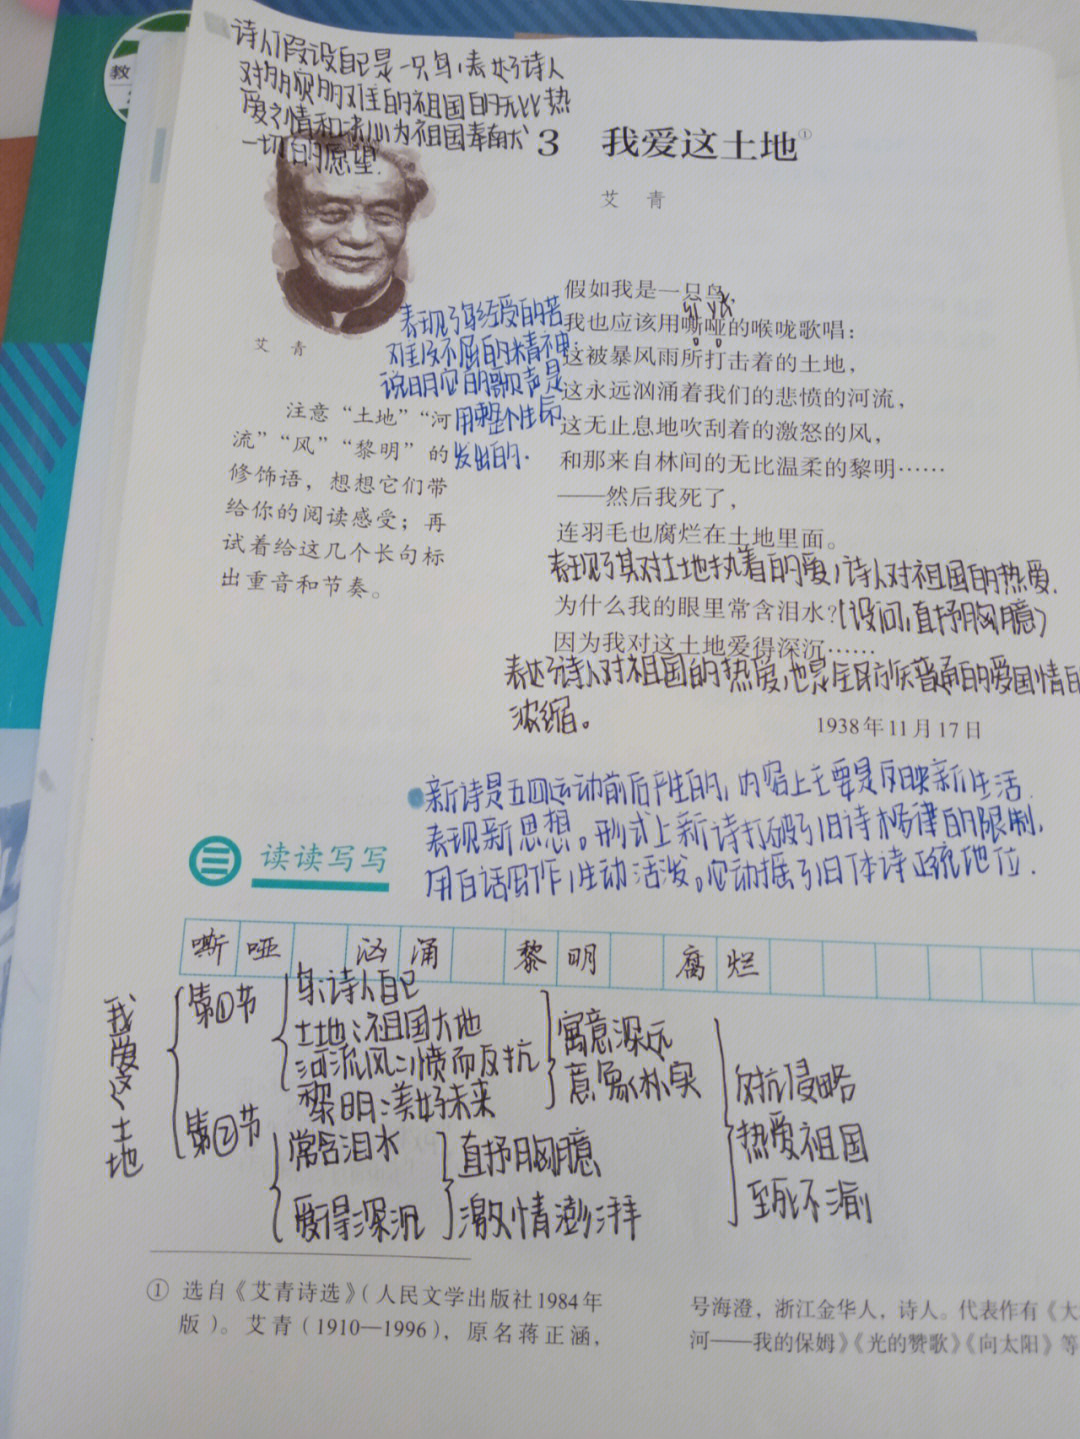 教
诗人假设自己是一只鸟，表达了诗人
对多灾多难的祖国的无比热
爱之情和决心为祖国奉献
一切的愿望.
3 我爱这土地①
艾 青
艾 青
假如我是一只鸟，
sī yǎ
我也应该用嘶哑的喉咙歌唱：
这被暴风雨所打击着的土地，
这永远汹涌着我们的悲愤的河流，
这无止息地吹刮着的激怒的风，
和那来自林间的无比温柔的黎明……
——然后我死了，
连羽毛也腐烂在土地里面。
表现了鸟经受的苦
难及不屈的精神忠
说明它的歌声是
用整个生命
发出的.
注意“土地”“河
流”“风”“黎明”的
修饰语，想想它们带
给你的阅读感受；再
试着给这几个长句标
出重音和节奏。
表现了其对土地执着的爱，诗人对祖国的热爱.
为什么我的眼里常含泪水？(设问，直抒胸臆)
因为我对这土地爱得深沉……
表达了诗人对祖国的热爱，也是全民族普遍的爱国情的
浓缩。
1938年11月17日
新诗是五四运动前后产生的，内容上主要是反映新生活
表现新思想。形式上新诗打破了旧诗格律的限制，
用白话写作，生动活泼。它动摇了旧体诗正统地位.
读读写写
嘶哑 汹涌 黎明 腐烂
我爱这土地
第①节
鸟：诗人自己
土地：祖国大地
河流风：愤而反抗
黎明：美好未来
寓意深远
意象朴实
第②节
常含泪水
爱得深沉
直抒胸臆
激情澎湃
对抗侵略
热爱祖国
至死不渝
① 选自《艾青诗选》（人民文学出版社1984年
版）。艾青（1910—1996），原名蒋正涵，
号海澄，浙江金华人，诗人。代表作有《大
河——我的保姆》《光的赞歌》《向太阳》等